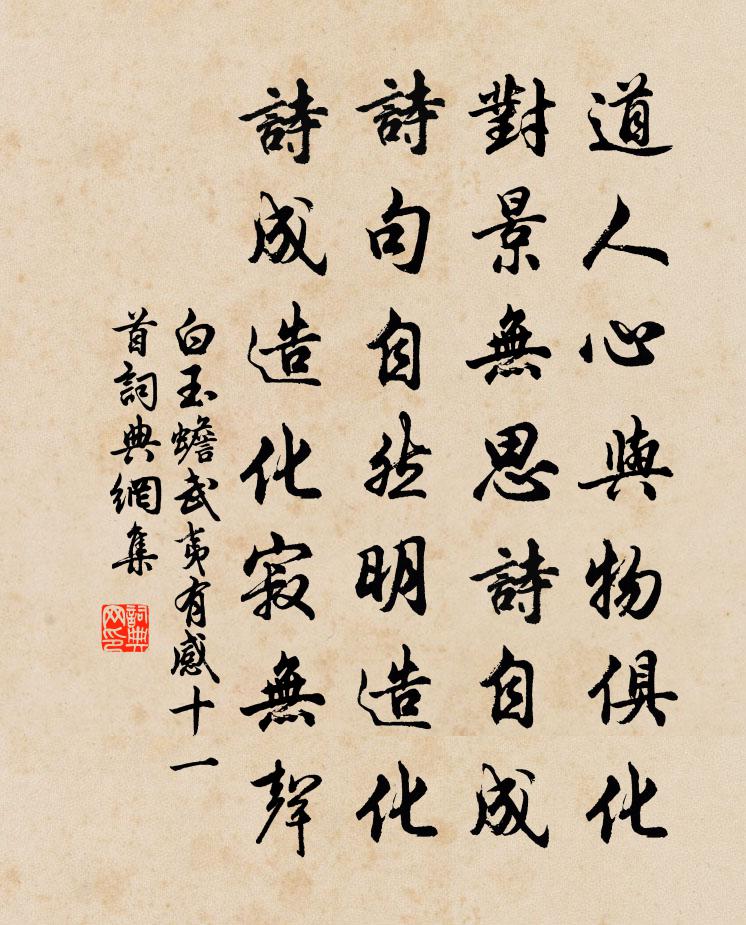 道人心與物俱化
對景無思詩自成
詩句自然明造化
詩成造化寂無聲
白玉蟾武夷有感十一
首詞典網集
詞典网印